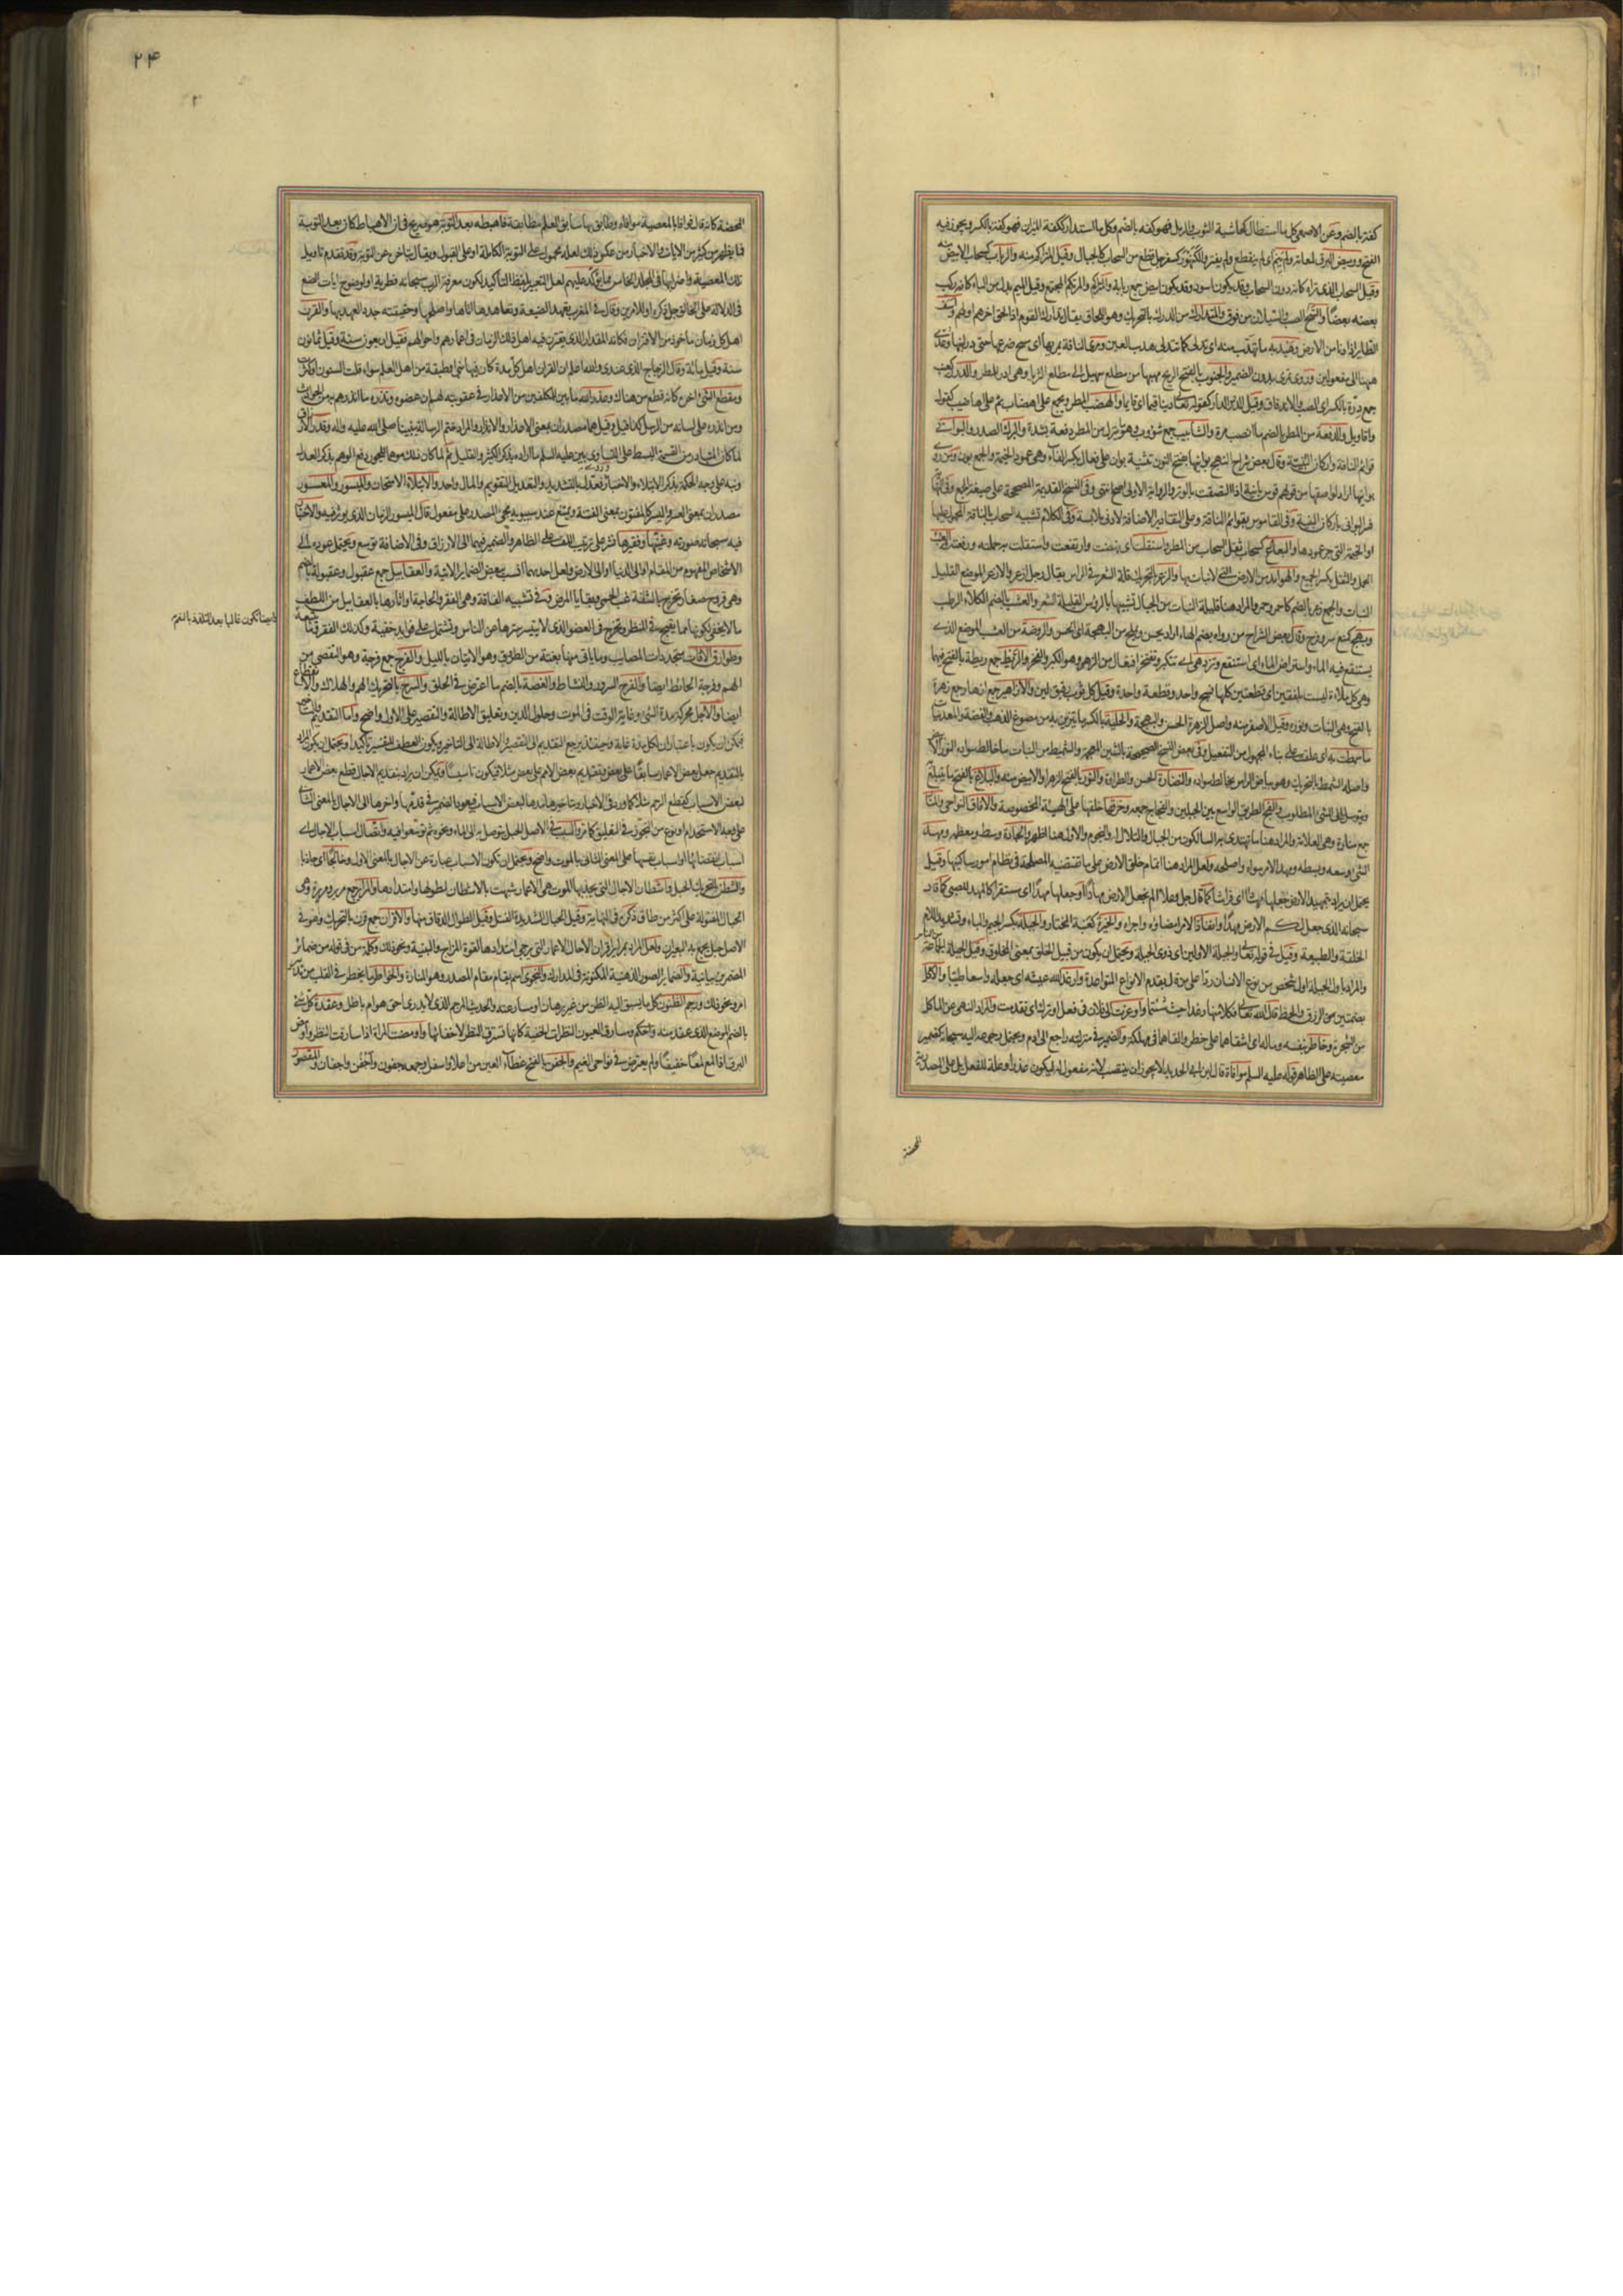 كفة بالضم وعن الاصمعي كل ما استطال كحاشية الثوب والرمل فهو كفه بالضم وكل ما استدار ككفة الميزان فهو كفة بالكسر ويجوز فيه
الفتح ووميض البرق لمعانه ولم ينم اى لم ينقطع ولم يفتر والكنهور كسفرجل قطع من السحاب كالجبال وقيل المتراكم منه والرباب كسحاب الابيض منه
وقيل السحاب الذى تراه كانه دون السحاب وقد يكون اسود وقد يكون ابيض جمع ربابة والمتراكم والمرتكم المجتمع وقيل الميم بدل من الباء كانه ركب
بعضه بعضا والسح الصب والسيلان من فوق والمتدارك من الدرك بالتحريك وهو اللحاق يقال تدارك القوم اذا لحق اخرهم اولهم واسف
الطاير اذا دنا من الارض وهيدبه ما تهدب منه اى تدلى كما يتدلى هدب العين ومرى الناقة يمريها اى مسح ضرعها حتى در لبنها وعدى
ههنا الى مفعولين وروى تمرى بدون الضمير والجنوب بالفتح الريح مهبها من مطلع سهيل الى مطلع الثريا وهى ادر للمطر والدرر كعنب
جمع درة بالكسر اى الصب والاندفاق وقيل الدرر الدار كقوله تعالى دينا قيما اى قايما والهضب المطر ويجمع على اهضاب ثم على اهاضيب كقول
واقاويل والدفعة من المطر بالضم ما انصب مرة والشآبيب جمع شؤبوب وهو ما ينزل من المطر دفعة بشدة والبرك الصدر والبوانى
قوائم الناقة واركان البنية وقال بعض شراح النهج بوانيها بفتح النون تثنية بوان على فعال بكسر الفاء وهى عمود الخيمة والجمع بون ومن روى
بوانيها اراد لواصقها من قولهم قوس بانية اذا التصقت بالوتر والرواية الاولى اصح انتهى وفى النسخ القديمة المصححة على صيغة الجمع وفى النهاية
فسر البوانى باركان البنية وفى القاموس بقوائم الناقة وعلى التقادير الاضافة لادنى ملابسة وفى الكلام تشبيه السحاب بالناقة المحمول عليها
او الخيمة التى جر عمودها والبعاع كسحاب ثقل السحاب من المطر واستقلت اى نهضت وارتفعت واستقلت به حملته ورفعته والعبء
الحمل والثقل بكسر الجميع والهوامد من الارض التى لا نبات بها والزعر بالتحريك قلة الشعر فى الراس يقال رجل ازعر والازعر الموضع القليل
النبات والجمع زعر بالضم كاحمر وحمر والمراد ههنا قليلة النبات من الجبال تشبيها بالرؤس القليلة الشعر والعشب بالضم الكلاء الرطب
وبهج كمنع سر وفرح وقال بعض الشراح من رواه بضم الهاء اراد يحسن ويملح من البهجة اى الحسن والروضة من العشب الموضع الذى
يستنقع فيه الماء واستراض الماء اى استنقع وتزدهى اى تتكبر وتفتخر افتعال من الزهو وهو الكبر والفخر والريط جمع ريطة بالفتح فيهما
وهى كل ملاءة ليست بلفقين اى قطعتين كلها نسج واحد وقطعة واحدة وقيل كل ثوب رقيق لين والازاهير جمع ازهار جمع زهرة
بالفتح وهى النبات ونوره وقيل الاصفر منه واصل الزهرة الحسن والبهجة والحلية بالكسر ما يتزين به من مصوغ الذهب والفضة والمعدنيات
ما سمطت به اى علقت على بناء المجهول من التفعيل وفى بعض النسخ الصحيحة بالشين المعجمة والشميط من النبات ما خالط سواده النور الابيض
واصله الشمط بالتحريك وهو بياض الراس يخالط سواده والنضارة الحسن والطراوة والنور بالفتح الزهر او الابيض منه والبلاغ بالفتح ما يتبلغ
ويتوسل الى الشىء المطلوب والفج الطريق الواسع بين الجبلين والفجاج جمعه وخرقها خلقها على الهيئة المخصوصة والافاق النواحى والمنار
جمع منارة وهى العلامة والمراد هنا ما تهتدى به السالكون من الجبال والتلال او النجوم والاول هنا اظهر والجادة وسط ومعظمه ومهد
الشىء وسعه وبسطه ومهد الامر سواه واصلحه ولعل المراد هنا اتمام خلق الارض على ما تقتضيه المصلحة فى نظام امور ساكنيها وقيل
يحتمل ان يراد بتمهيد الارض جعلها مهادا اى فراشا كما قال جل وعلا الم نجعل الارض مهادا او جعلها مهدا اى مستقرا كالمهد للصبى كما قال
سبحانه الذى جعل لكم الارض مهدا وانفاذ الامر امضاؤه واجراؤه والخيرة كعنبة المختار والجبلة بكسر الجيم والباء وتشديد اللام
الخلقة والطبيعة وقيل فى قوله تعالى والجبلة الاولين اى ذوى الجبلة ويحتمل ان يكون من قبيل الخلق بمعنى المخلوق وقيل الجبلة الجماعة من الناس
والمراد باول الجبلة اول شخص من نوع الانسان ردا على من قال بقدم الانواع المتوالدة وارغد الله عيشه اى جعله واسعا طيبا والاكل
بضمتين من الرزق والحظ قال الله تعالى فكلا منها رغدا حيث شئتما واوعزت الى فلان فى فعل او ترك اى تقدمت والمراد النهى عن الاكل
من الشجرة وخاطر بنفسه وماله اى اشفاهما على خطر والقاهما فى مهلكة والضمير فى منزلته راجع الى ادم ويحتمل رجوعه اليه سبحانه كضمير
معصيته على الظاهر قوله عليه السلم موافاة قال ابن ابى الحديد لا يجوز ان ينتصب لانه مفعول له ليكون عذرا وعلة للفعل بل على المصدرية
المحضة
٢٤
المحضة كانه قال فوافا بالمعصية موافاة وطابق بها سابق العلم مطابقة فاهبطه بعد التوبة هو صريح فى ان الاهباط كان بعد التوبة
فما يظهر من كثير من الايات والاخبار من عكس ذلك لعله محمول على التوبة الكاملة او على القبول ويقال بتاخره عن التوبة وقد تقدم تاويل
تلك المعصية واضرابها فى المجلد الخامس مما يؤكد عليهم لعل التعبير بلفظ التاكيد لكون معرفة الرب سبحانه فطرية او لوضوح ايات الصنع
فى الدلالة على الخالق جل ذكره او للامرين وقال فى المغرب تعهد الضيعة وتعاهدها اتاها واصلحها وحقيقته جدد العهد بها والقرن
اهل كل زمان ماخوذ من الاقتران فكانه المقدار الذى يقترن فيه اهل ذلك الزمان فى اعمارهم واحوالهم فقيل اربعون سنة وقيل ثمانون
سنة وقيل مائة وقال الزجاج الذى عندى والله اعلم ان القرن اهل كل مدة كان فيها نبى او طبقة من اهل العلم سواء قلت السنون او كثرت
ومقطع الشىء اخره كانه قطع من هناك وعذر الله ما بين للمكلفين من الاعذار فى عقوبته لهم ان عصوه ونذره ما انذرهم به من الحوادث
ومن انذره على لسانه من الرسل كذا قيل وقيل هما مصدران بمعنى الاعذار والانذار والمراد ختم الرسالة بنبينا صلى الله عليه واله وقدر الارزاق
لما كان المتبادر من القسمة البسط على التساوى بين عليه السلم ما اراده بذكر الكثير والقليل ثم لما كان ذلك موهما للجور دفع الوهم بذكر العدل
ونبه على وجه الحكمة بذكر الابتلاء والاختبار وروى فعدّل بالتشديد والتعديل التقويم والمال واحد والابتلاء الامتحان والميسور والمعسور
مصدران بمعنى العسر واليسر كالمفتون بمعنى الفتنة ويمتنع عند سيبويه مجىء المصدر على مفعول قال الميسور الزمان الذى يوسر فيه والاختبار
فيه سبحانه صورته وغنيها وفقيرها نشر على ترتيب اللف على الظاهر والضمير فيهما الى الارزاق وفى الاضافة توسع ويحتمل عوده الى
الاشخاص المفهوم من المقام او الى الدنيا او الى الارض ولعل احديهما انسب ببعض الضماير الاتية والعقابيل جمع عقبول وعقبولة بالضم
وهى قروح صغار تخرج بالشفة غب الحمى وبقايا المرض وفى تشبيه الفاقة وهى الفقر والحاجة او اثارها بالعقابيل من اللطف
ما لا يخفى لكونها مما يقبح فى المنظر وتخرج فى العضو الذى لا يتيسر سترها عن الناس وتشتمل على فوايد خفية وكذلك الفقر وما يتبعه
وايضا تكون غالبا بعد التلذذ بالنعم
وطوارق الافات متجددات المصايب وما ياتى منها بغتة من الطروق وهو الاتيان بالليل والفرج جمع فرجة وهو التفصى من
الهم وفرجة الحائط ايضا والفرح السرور والنشاط والغصة بالضم ما اعترض فى الحلق والترح بالتحريك الهم والهلاك والانقطاع
ايضا والاجل محركة مدة الشىء وغاية الوقت فى الموت وحلول الدين وتعليق الاطالة والتقصير على الاول واضح واما التقديم والتاخير
فيمكن ان يكون باعتبار ان لكل مدة غاية وحينئذ يرجع التقديم الى التقصير والاطالة الى التاخير ويكون العطف للتفسير تاكيدا ويحتمل ان يكون المراد
بالتقديم جعل بعض الاعمار سابقا على بعض وتقديم بعض الامم على بعض مثلا فيكون تاسيسا ويمكن ان يراد بتقديم الاجال قطع بعض الاعمار
لبعض الاسباب كقطع الرحم مثلا كما ورد فى الاخبار وبتاخيرها مدها لبعض الاسباب فيعود الضمير فى قدمها واخرها الى الاجال بالمعنى الثانى
على وجه الاستخدام او نوع من التجوز فى التعليق كما مر والسبب فى الاصل الحبل يتوصل به الى الماء ونحوه ثم توسعوا فيه واتصال اسباب الاجال اى
اسباب انقضائها او اسباب نفسها على المعنى الثانى بالموت واضح ويحتمل ان تكون الاسباب عبارة عن الاجال بالمعنى الاول وخالجا اى جاذبا
والشطن بالتحريك الحبل واشطان الاجال التى يجذبها الموت هى الاعمار شبهت بالاشطان لطولها وامتدادها والمراير جمع مرير ومريرة وهى
الحبال المفتولة على اكثر من طاق ذكره فى النهاية وقيل الحبال الشديدة الفتل وقيل الطوال الدقاق منها والاقران جمع قرن بالتحريك وهو فى
الاصل حبل يجمع به البعيران ولعل المراد بمراير اقران الاجال الاعمار التى يرجى امتدادها لقوة المزاج والبنية ونحو ذلك وكلمة من فى قوله من ضمائر
المضمرين بيانية والضماير الصور الذهنية المكنونة فى المدارك والنجوى اسم يقام مقام المصدر وهو المسارة والخواطر ما يخطر فى القلب من تدبير
امر ونحو ذلك ورجم الظنون كل ما يسبق اليه الظن من غير برهان او مسارعته والحديث المرجم الذى لا يدرى احق هو ام باطل وعقدة كل شىء
بالضم الموضع الذى عقد منه واحكم ومسارق العيون النظرات الخفية كانها تسترق النظر لاخفائها واومضت المراة اذا سارقت النظر واومض
البرق اذا لمع لمعا خفيفا ولم يعترض فى نواحى الغيم والجفن بالفتح غطاء العين من اعلا واسفل وجمعه جفون واجفن واجفان والمقصود